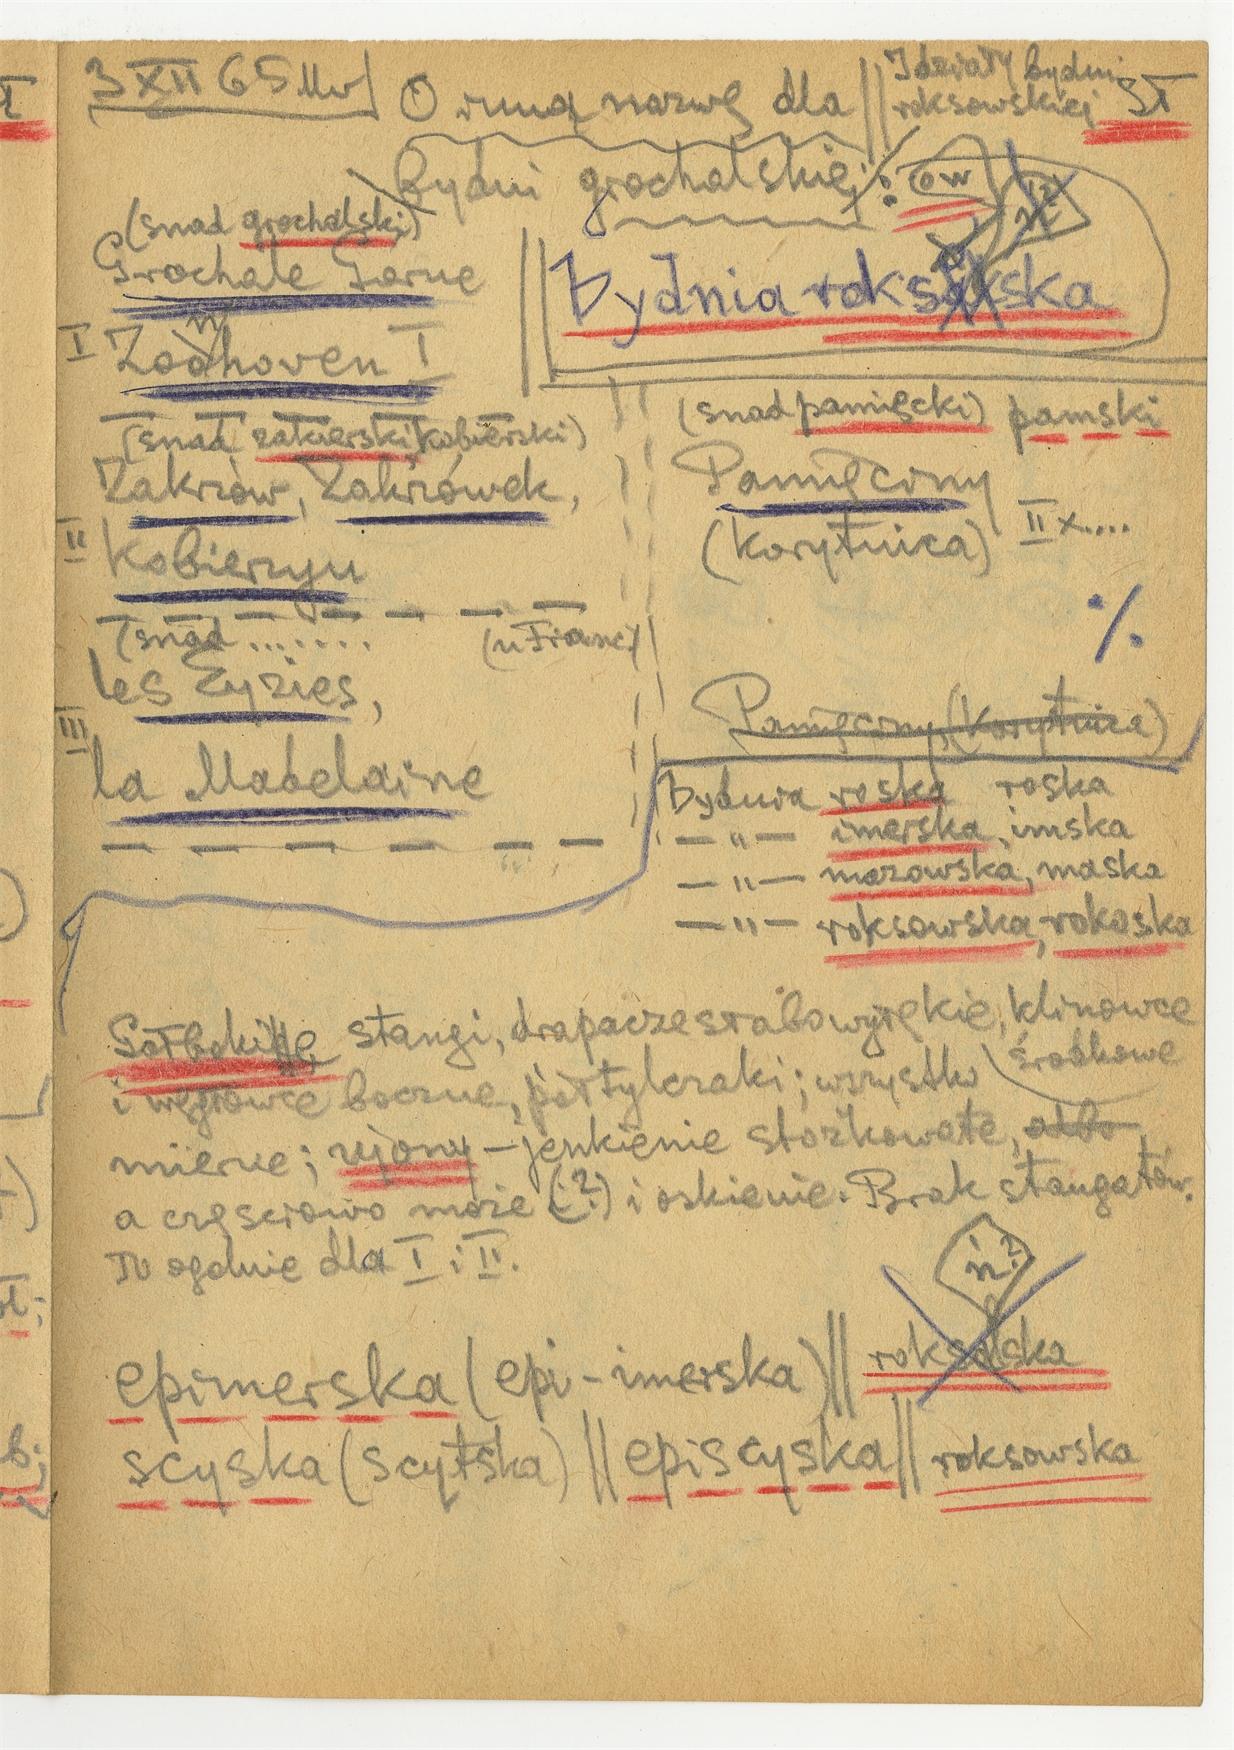 3 XII 65 Mw
O inną nazwę dla
I działy bydni
roksowskiej
ST
bydni grochalskiej:
ow
n?
(snad grochalski)
Grochale Górne
Bydnia roksońska
I Zonhoven I
(snad zakrerski, kobierski)
Zakrzów, Zakrzówek,
II Kobierzyn
(snad .......
(u Franc)
les Eyzies,
III
la Madelaine
(snad pamięcki) pamski
Pamięciny
(Korytnica) II x....
%
Pamięciny, (Korytnica)
Bydnia roska roska
— " — imerska, imska
— " — mazowska, maska
— " — roksowska, rokoska
stangi, drapacze słabowyrękie, klinowce
środkowe
i węgłowce boczne, półtylczaki; wszystko
mierne; rejony – jenkienie stożkowate, albo
a częściowo może (?) i oskienie. Brak stangatów.
To ogólnie dla I i II.
n?
epimerska (epi-imerska) || roksońska
scyska (scytska) || episcyska || roksowska